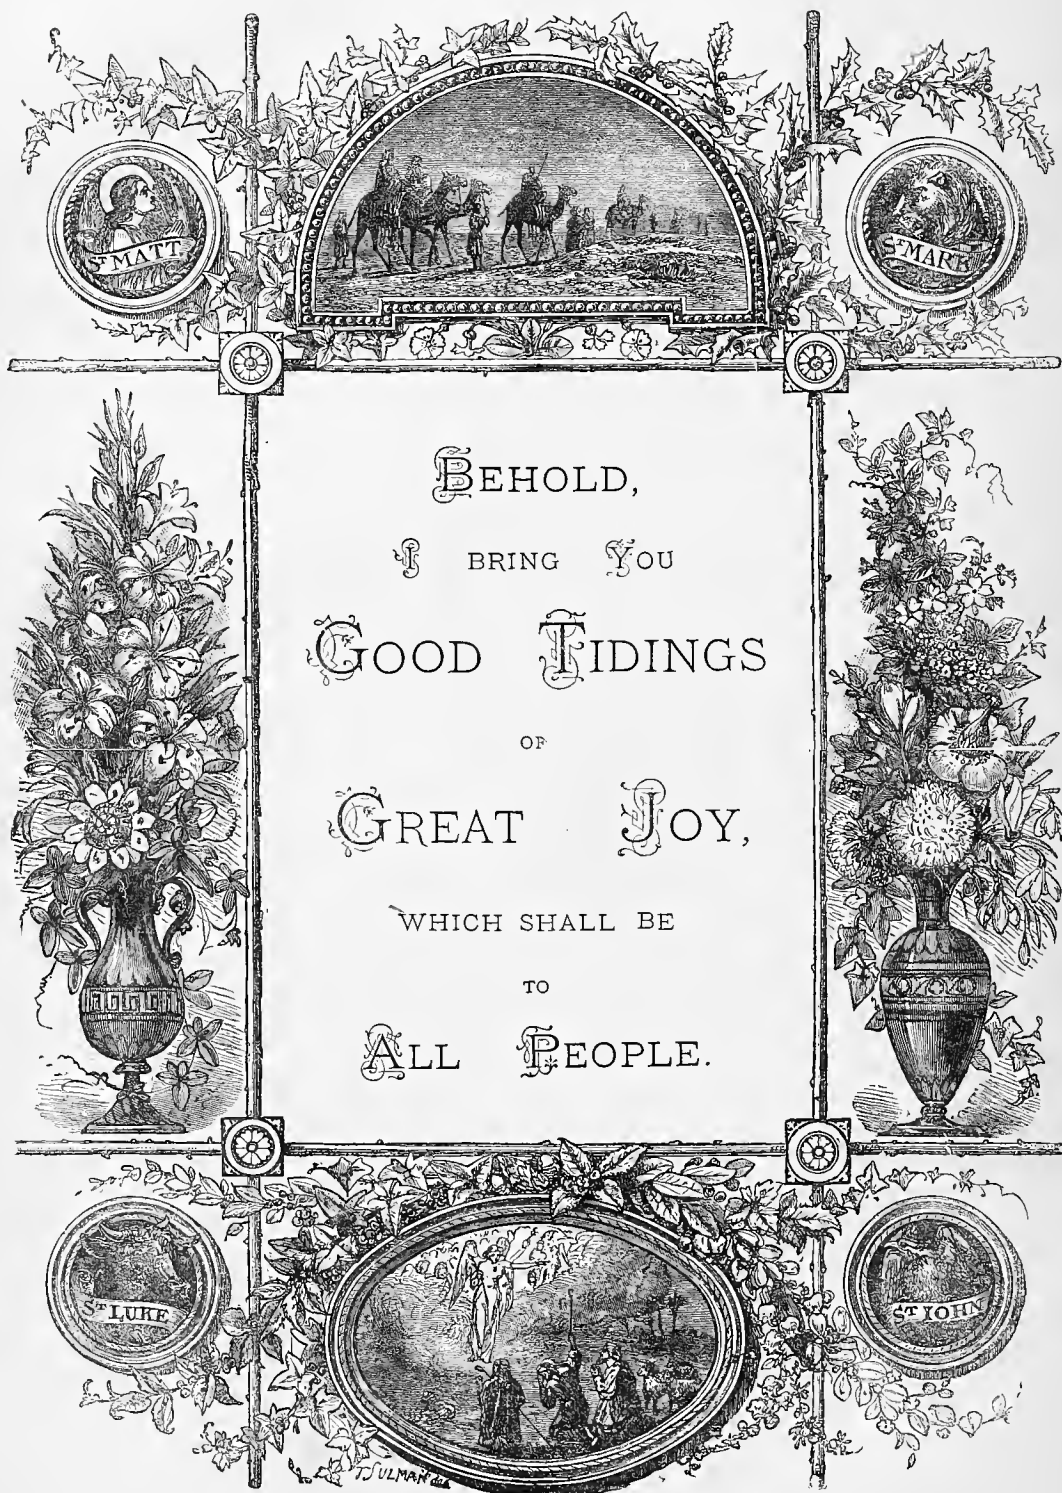 ST MATT.
ST MARK
BEHOLD,
I BRING YOU
GOOD TIDINGS
OF
GREAT JOY,
WHICH SHALL BE
TO
ALL PEOPLE.
ST LUKE
ST IOHN
T. SULMAN